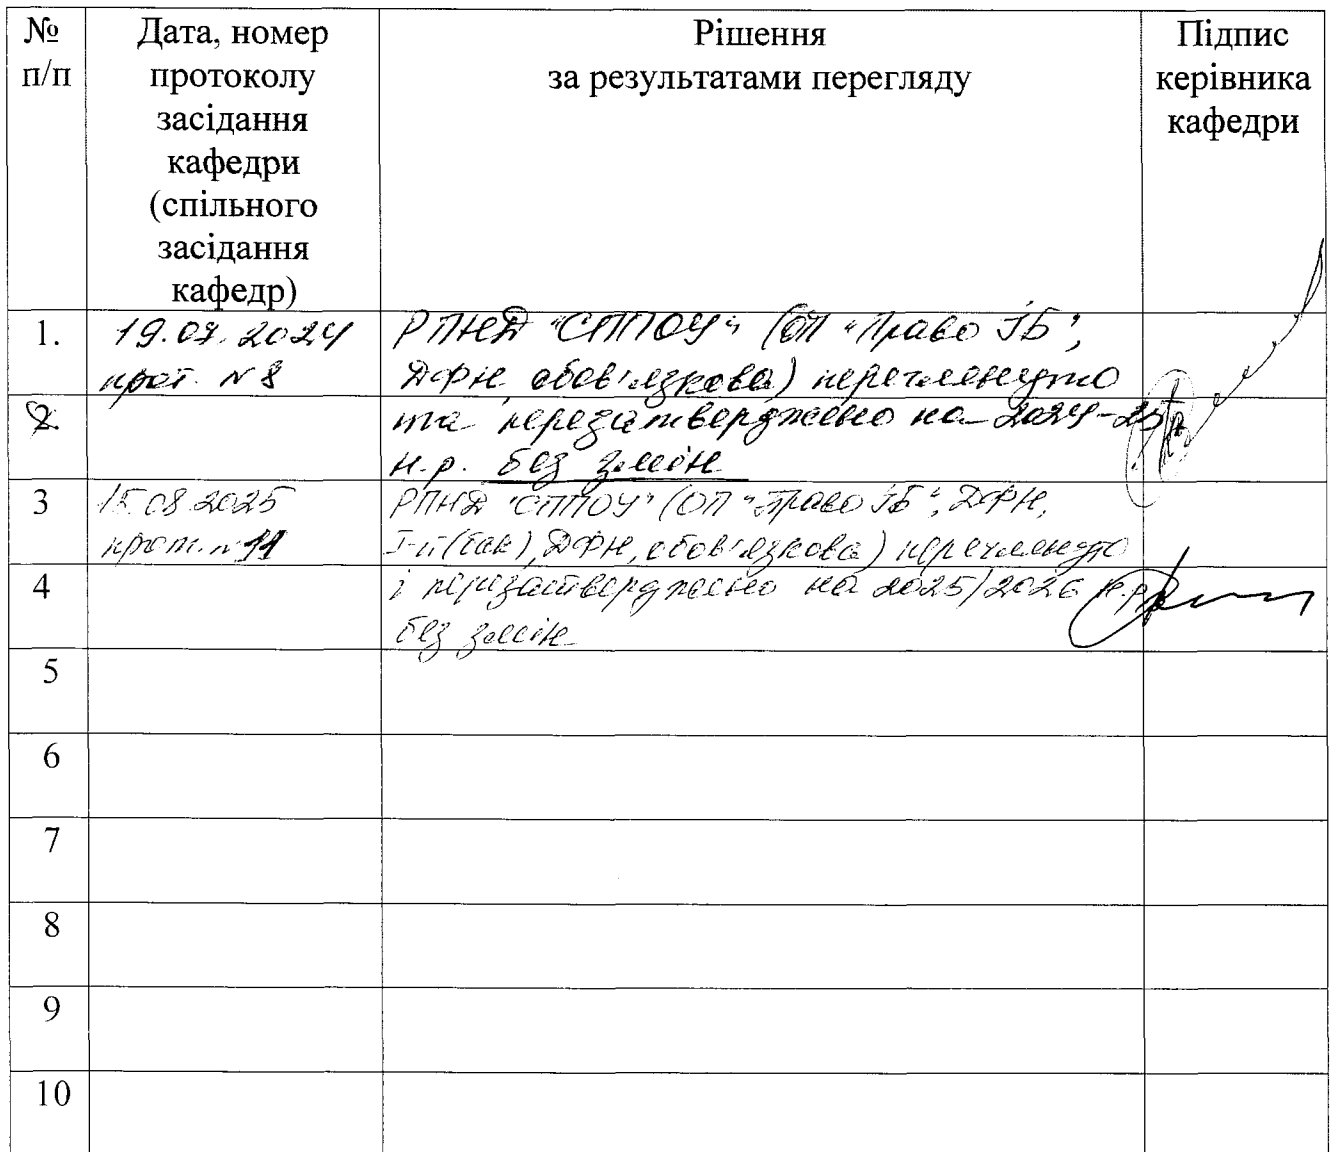 № п/п
Дата, номер протоколу засідання кафедри (спільного засідання кафедр)
Рішення за результатами перегляду
Підпис керівника кафедри
1.
19.07.2024
прот. N 8
РПНД "СППОУ" (ОП "Право ІБ",
ДФН, обов'язкова) переглянуто
2.
та перезатверджено на 2024-25
н.р. без змін
3
15.08.2025
прот. N 11
РПНД "СППОУ" (ОП "Право ІБ", ДФН,
І-й (бак), ДФН, обов'язкова) переглянуто
4
і перезатверджено на 2025/2026 н.р.
без змін
5
6
7
8
9
10